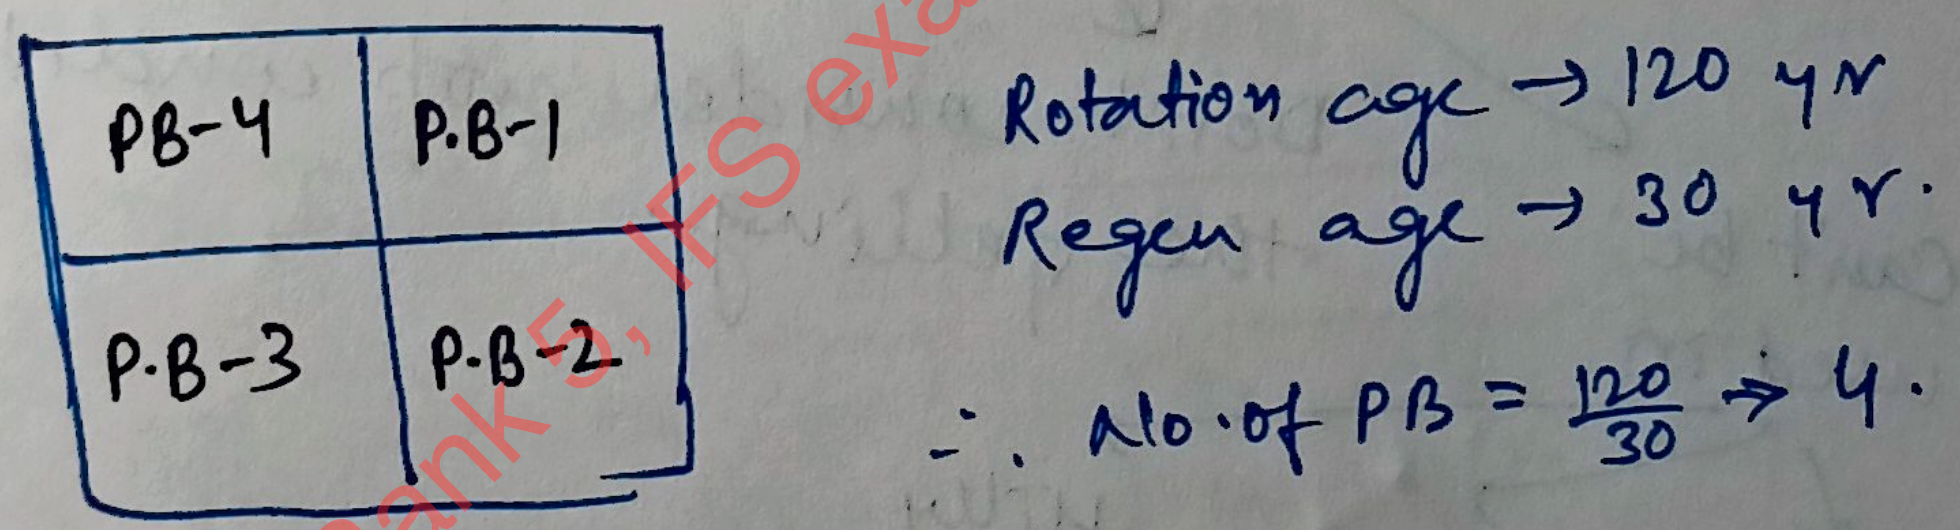 PB-4 P.B-1
P.B-3 P.B-2
Rotation age → 120 yr
Regen age → 30 yr.
∴ No. of PB = 120/30 → 4.
ank 5, IFS exa